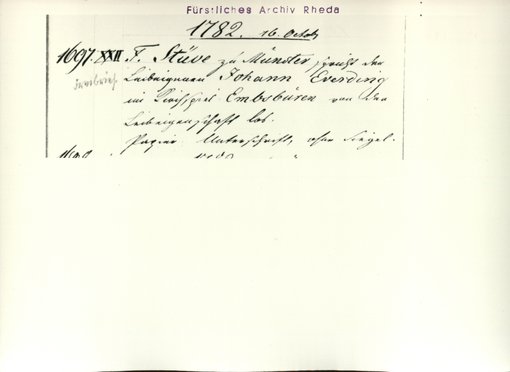 Fürstliches Archiv Rheda
1782. 16. Octob
1697. XXII F. Stüve zu Münster spricht den
Leibeigenen Johann Everding
im Kirchspiel Embsbüren von der
Leibeigenschaft los.
Papier Unterschrift, ohne Siegel.